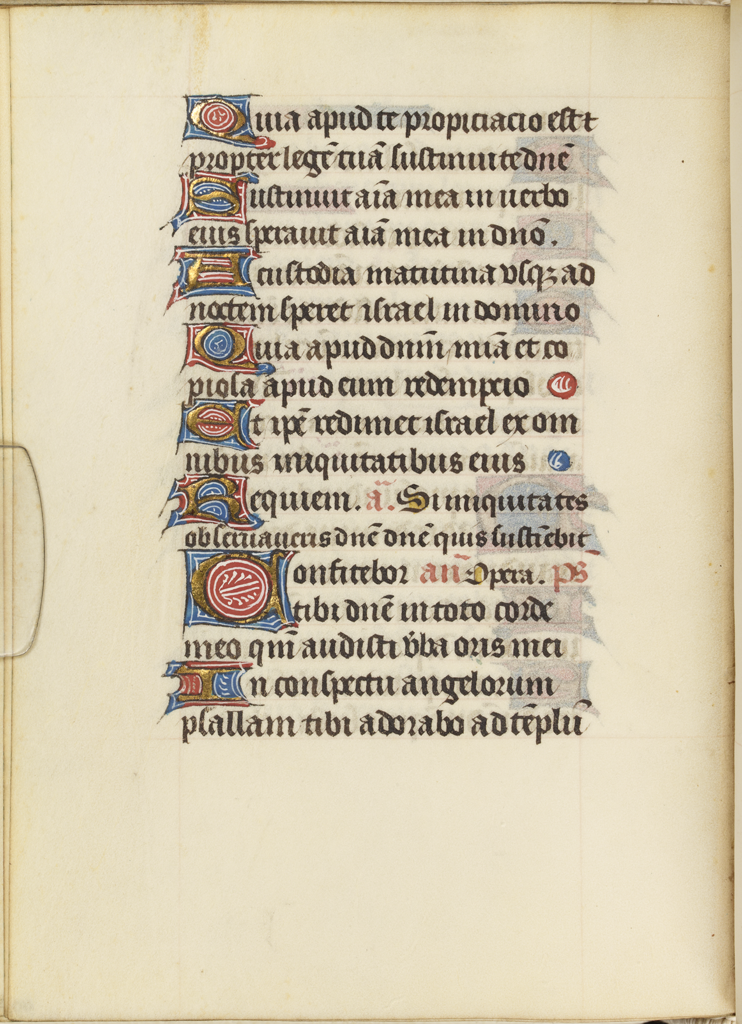 Quia apud te propiciacio est ⁊
propter legē tuā sustinui te dnē
Sustinuit aīa mea in uerbo
eius speravit aīa mea in dnō.
A custodia matutina vsqꝫ ad
noctem speret israel in domino
Quia apud dnm̄ miā et co
piosa apud eum redempcio
Et ipē redimet israel ex om
nibus iniquitatibus eius
Requiem. ā. Si iniquitates
obseruaueris dnē dnē quis sustīebit
Confitebor añ Opera. ps̄
tibi dnē in toto corde
meo qm̄ audisti v̄ba oris mei
In conspectu angelorum
psallam tibi adorabo ad tēplū